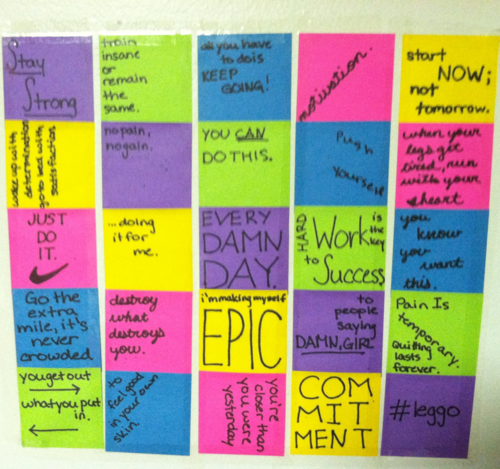 Stay
Strong
train
insane
or
remain
the
same.
all you have
to do is
KEEP
GOING!
motivation.
start
NOW;
not
tomorrow.
wake up with
determination
go to bed with
satisfaction
no pain,
no gain.
YOU CAN
DO THIS.
Push
Yourself
when your
legs get
tired, run
with your
heart
JUST
DO
IT.
...doing
it for
me.
EVERY
DAMN
DAY.
HARD Work is
the
key
to Success
you
know
you
want
this.
Go the
extra
mile, it's
never
crowded
destroy
what
destroys
you.
i'm making myself
EPIC
to
people
saying
DAMN, GIRL
Pain Is
temporary.
Quitting
lasts
forever.
you get out
what you put
in.
to
feel good
in your own
skin.
you're
closer than
you were
yesterday
COM
MIT
MENT
#leggo